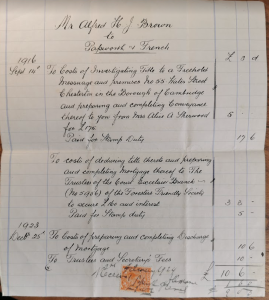 Mr Alfred H. J. Brown
to
Papworth & French
1916 £ s d
Sept 14th To Costs of Investigating Title to a Freehold
Messuage and premises No 55 Hales Street
Chesterton in the Borough of Cambridge
and preparing and completing Conveyance
thereof to you from Mrs Alice A Sherwood
for £176
Paid for Stamp Duty 17 6
To costs of deducing title thereto and preparing
and completing Mortgage thereof to The
Trustees of the Court Branch
(No 5996) of the Foresters Friendly Society
to secure and interest 3 3 -
Paid for Stamp duty 5 -
1923
25th To Costs of preparing and completing Discharge
of Mortgage 10 6
To Trustees and Secretary's Fees
£ 10 6 -